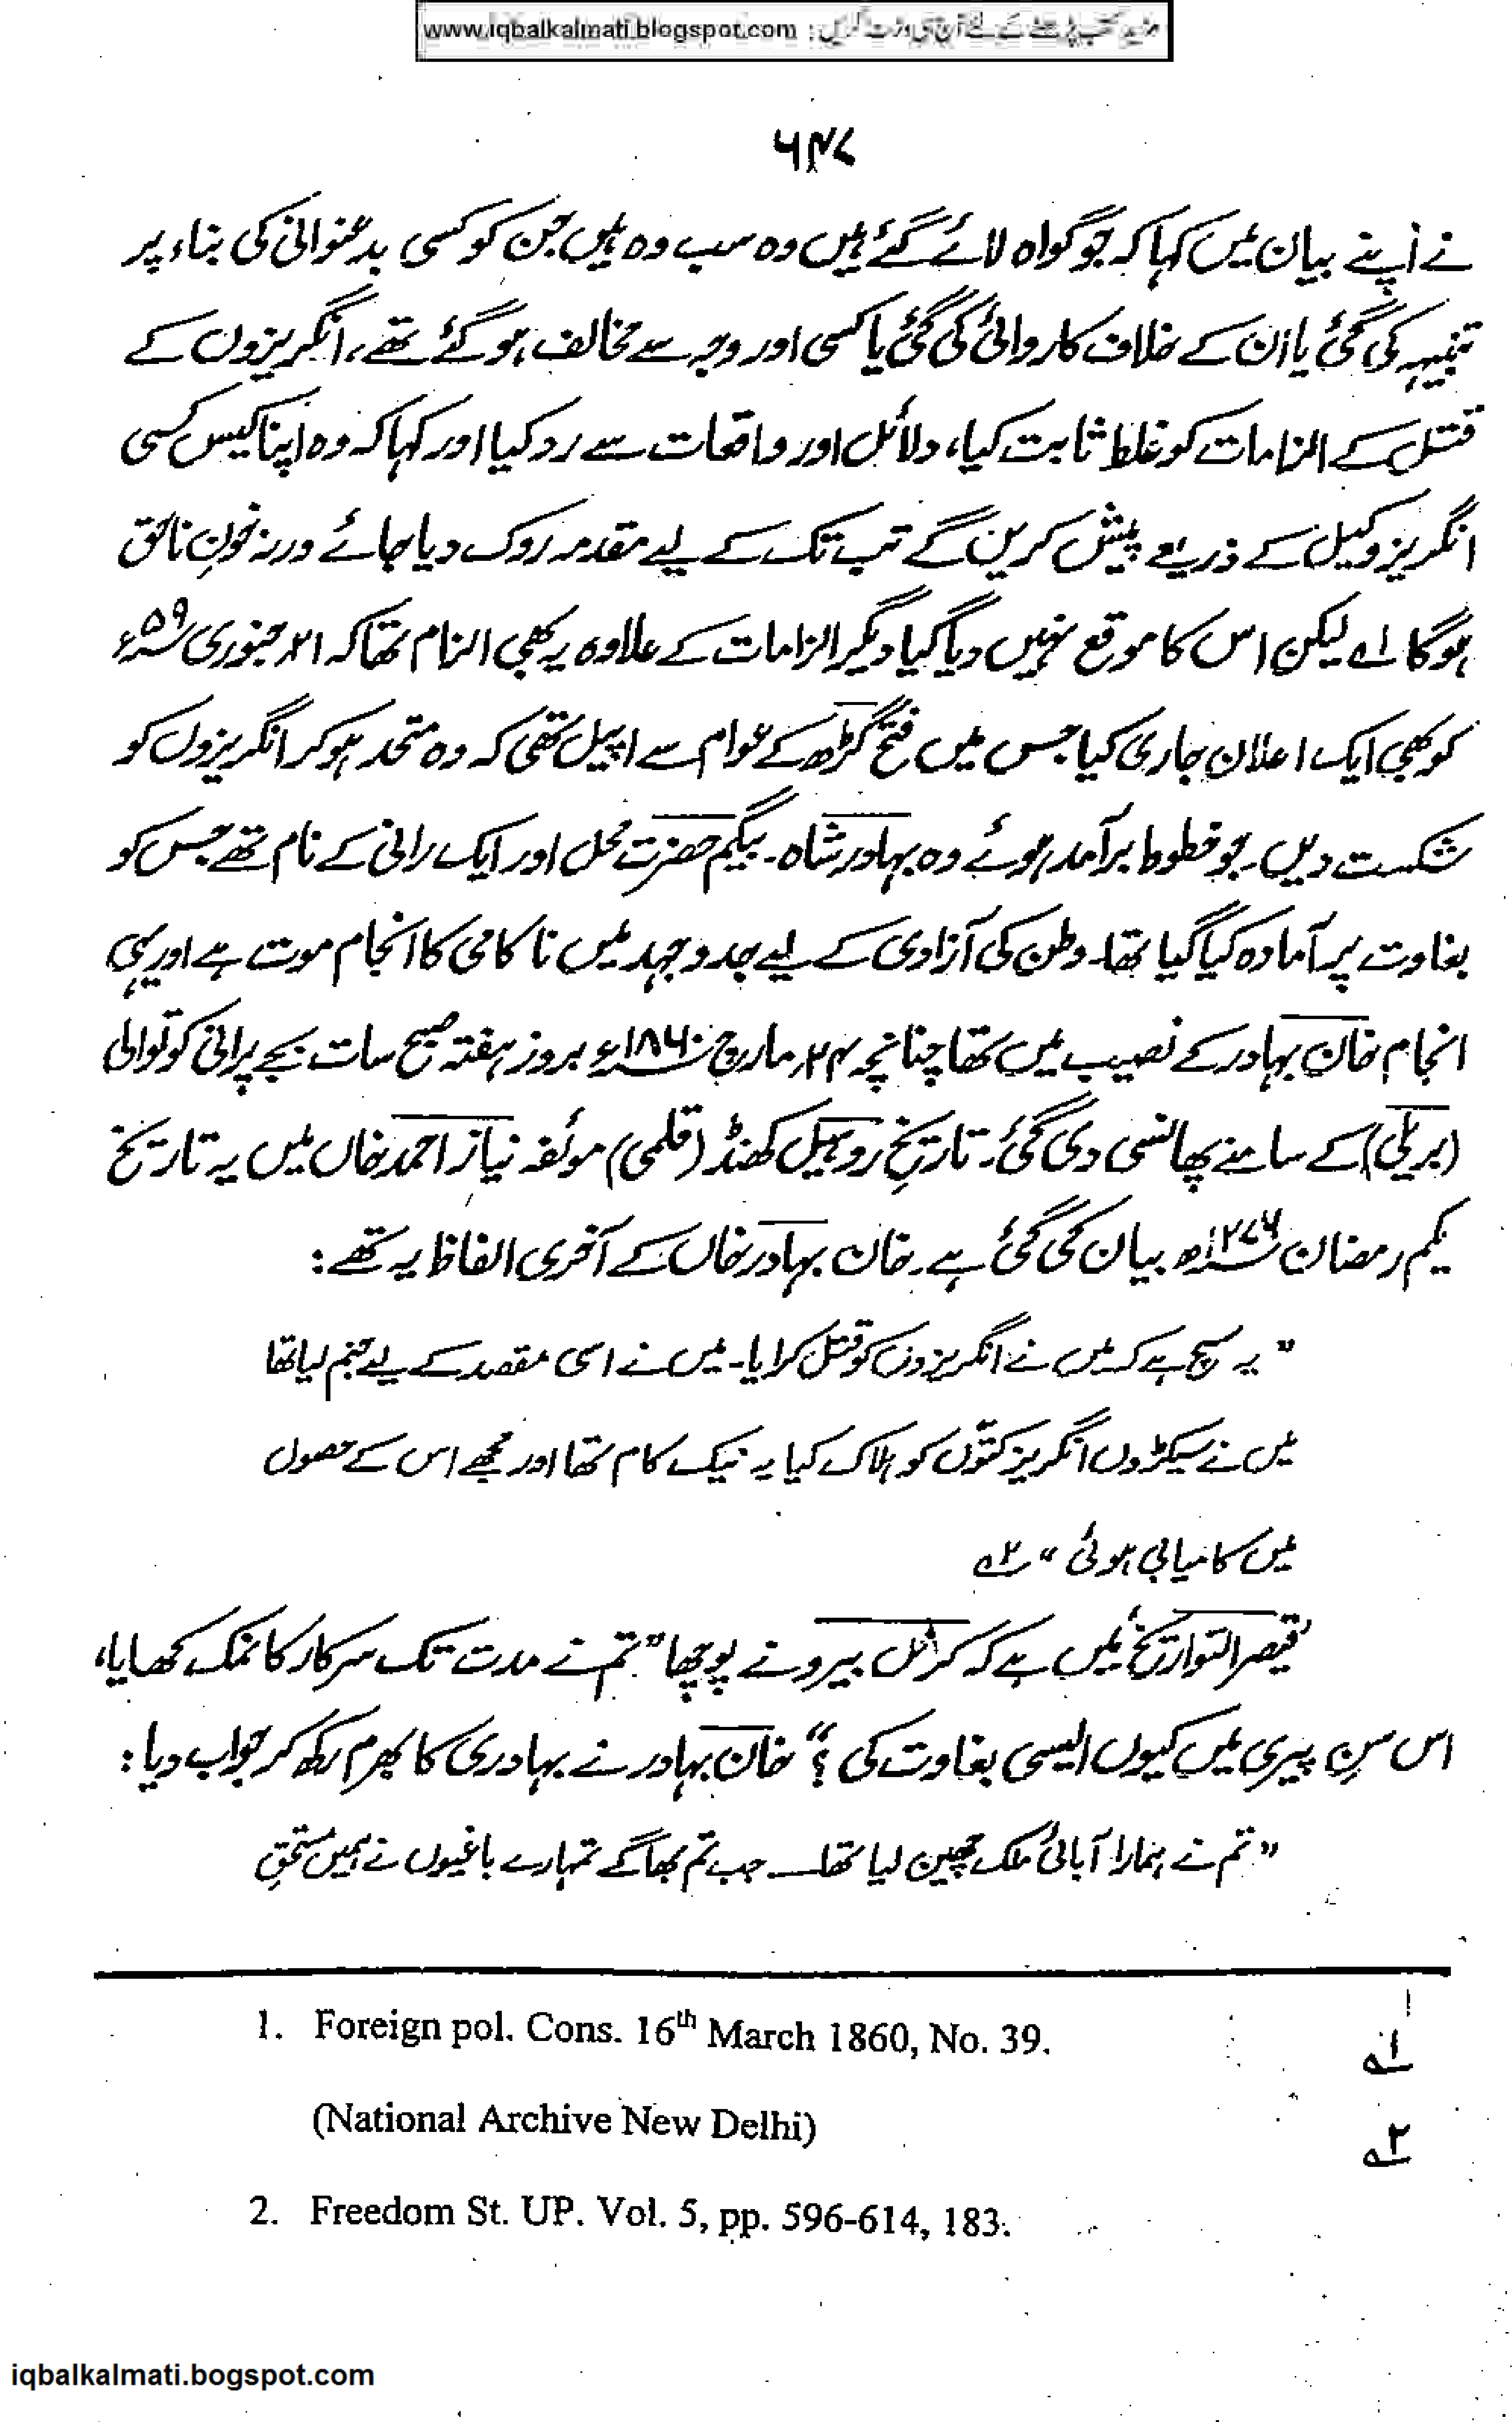 مزید کتب پڑھنے کے لئے آج ہی وزٹ کریں : www.iqbalkalmati.blogspot.com
۵۴۷
نے اپنے بیان میں کہا کہ جو گواہ لائے گئے ہیں وہ سب وہ ہیں جن کو کسی بدعنوانی کی بناء پر
تنبیہہ کی گئی یا ان کے خلاف کاروائی کی گئی یا کسی اور وجہ سے مخالف ہو گئے تھے، انگریزوں کے
قتل کے الزامات کو غلط ثابت کیا، دلائل اور واقعات سے رد کیا اور کہا کہ وہ اپنا کیس کسی
انگریز وکیل کے ذریعے پیش کریں گے تب تک کے لیے مقدمہ روک دیا جائے ورنہ خونِ ناحق
ہوگا ۱ے لیکن اس کا موقع نہیں دیا گیا دیگر الزامات کے علاوہ یہ بھی الزام تھا کہ ۲۱ جنوری ۵۹ء
کو بھی ایک اعلان جاری کیا جس میں فتح گڑھ کے عوام سے اپیل تھی کہ وہ متحد ہو کر انگریزوں کو
شکست دیں۔ جو خطوط برآمد ہوئے وہ بہادر شاہ۔ بیگم حضرت محل اور ایک رانی کے نام تھے جس کو
بغاوت پر آمادہ کیا گیا تھا۔ وطن کی آزادی کے لیے جدوجہد میں ناکامی کا انجام موت ہے اور یہی
انجام خان بہادر کے نصیب میں تھا چنانچہ ۲۴ مارچ ۱۸۶۰ء بروز ہفتہ صبح سات بجے پرانی کوتوالی
(بریلی) کے سامنے پھانسی دی گئی۔ تاریخِ روہیل کھنڈ (قلمی) مولفہ نیاز احمد خاں میں یہ تاریخ
یکم رمضان ۱۲۷۶ھ بیان کی گئی ہے۔ خان بہادر خاں کے آخری الفاظ یہ تھے :
” یہ سچ ہے کہ میں نے انگریزوں کو قتل کرایا۔ میں نے اسی مقصد کے لیے جنم لیا تھا
میں نے سیکڑوں انگریز کتوں کو ہلاک کیا یہ نیک کام تھا اور مجھے اس کے حصول
میں کامیابی ہوئی “ ۲ے
’قیصر التواریخ‘ میں ہے کہ کرنل بیرو نے پوچھا ”تم نے مدت تک سرکار کا نمک کھایا،
اس سنِ پیری میں کیوں ایسی بغاوت کی ؟“ خان بہادر نے بہادری کا بھرم رکھ کر جواب دیا :
” تم نے ہمارا آبائی ملک چھین لیا تھا۔ جب تم بھاگے تمہارے باغیوں نے ہمیں مستحقِ
1. Foreign pol. Cons. 16th March 1860, No. 39. ۱ے
(National Archive New Delhi) ۲ے
2. Freedom St. UP. Vol. 5, pp. 596-614, 183.
iqbalkalmati.bogspot.com